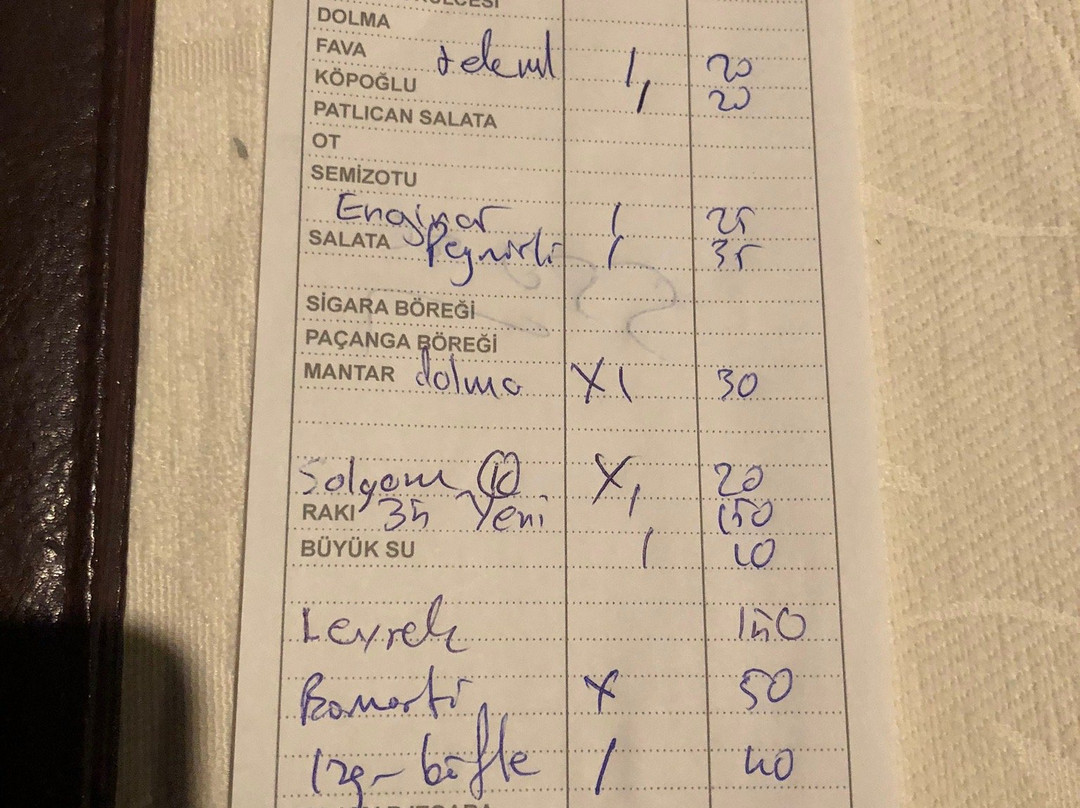 DOLMA
FAVA teleml 1, 20
KÖPOĞLU 1 20
PATLICAN SALATA
OT
SEMİZOTU
Enginar 1 25
SALATA Peynirli 1 35
SİGARA BÖREĞİ
PAÇANGA BÖREĞİ
MANTAR dolma X1 30
Şalgam 10 X, 20
RAKI 35 Yeni 150
BÜYÜK SU 1 10
Levrek 150
Bomonti X 50
Izg- köfte 1 40